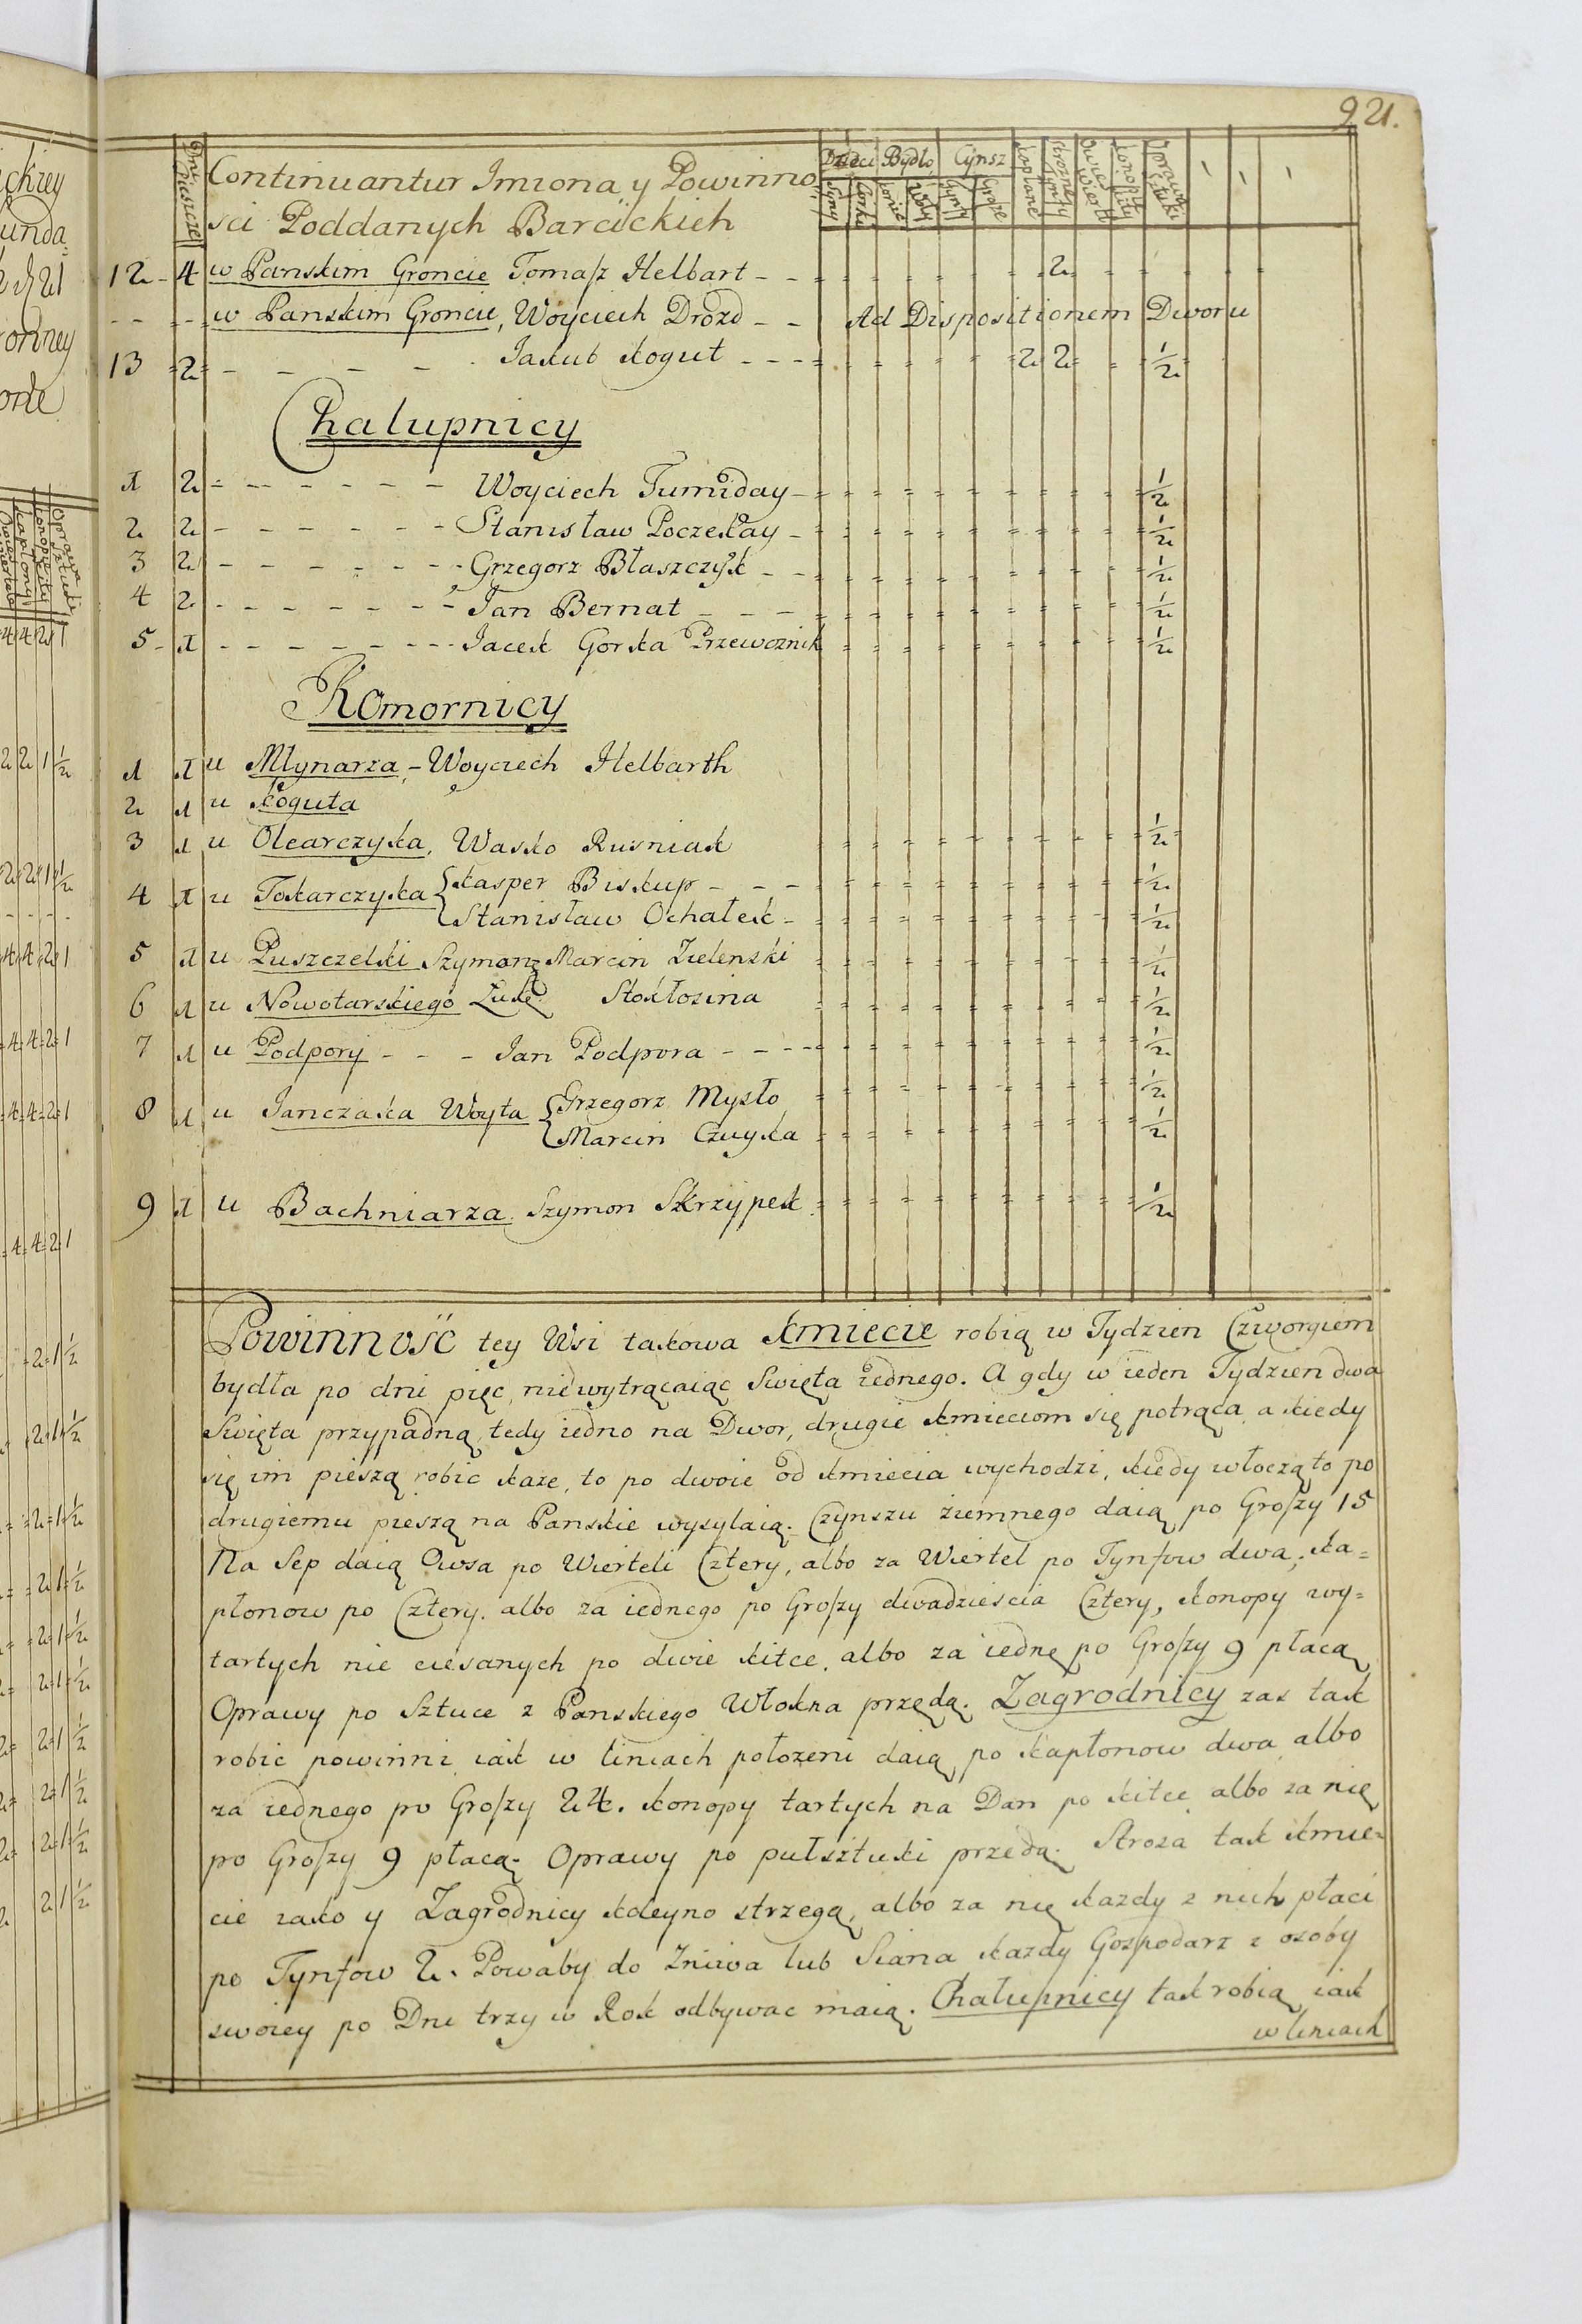 921.
Dni Piesze
Continuantur Imiona y Powinno
sci Poddanych Barcickich
Dzieci Bydło Cynsz
Syny Corki Konie Woły Tynfy Grosze Kapłony Stroza Tynfy
12 - 4 w Panskim Groncie Tomasz Helbart - - 2
- - - - w Panskim Groncie, Woyciech Drozd - - Ad Dispositionem Dworu
13 2 - - - - Jakub Kogut - - - 2 2 1/2
Chalupnicy
1 2 - - - - - - Woyciech Tumiday - 1/2
2 2 - - - - - - - Stanisław Poczekay - 1/2
3 2 - - - - - - - Grzegorz Błaszczyk - - 1/2
4 2 - - - - - - - Jan Bernat - - - 1/2
5 - 1 - - - - - - - Jacek Gorka Przewoznik 1/2
Komornicy
1 1 u Młynarza - Woyciech Helbarth
2 1 u Koguta
3 1 u Olearczyka, Wasko Rusniak 1/2
4 1 u Tokarczyka { Kasper Biskup - - - 1/2
Stanisław Ochałek - 1/2
5 1 u Puszczelski Szymanz Marcin Zielenski 1/2
6 1 u Nowotarskiego Stokłosina 1/2
7 1 u Podpory - - - Jan Podpora - - - - 1/2
8 1 u Janczaka Woyta { Grzegorz Mysło 1/2
Marcin Czuyka 1/2
9 1 u Bachniarza Szymon Skrzypek 1/2
Powinność tey Wsi takowa Kmiecie robią w Tydzien Czworgiem
bydła po dni pięc, niewytrącaiąc Swięta iednego. A gdy w ieden Tydzien dwa
Swięta przypadną, tedy iedno na Dwor, drugie Kmieciom się potrąca, a kiedy
się im pieszą robic kaze, to po dwoie od Kmiecia wychodzi, kiedy włoczą to po
drugiemu pieszą na Panskie wysyłaią. Czynszu ziemnego daią po Groszy 15
Na Sep daią Owsa po Wierteli Cztery, albo za Wiertel po Tynfow dwa, Ka=
płonow po Cztery. albo za iednego po Groszy dwadziescia Cztery, Konopy wy=
tartych nie ciesanych po dwie kitce, albo za iednę po Groszy 9 płacą
Oprawy po Sztuce z Panskiego Włokna przędą. Zagrodnicy zas tak
robic powinni iak w liniach połozeni daią po Kapłonow dwa albo
za iednego po Groszy 24. Konopy tartych na Dan po kitce albo za nię
po Groszy 9 płacą. Oprawy po pułsztuki przędą. Stroza tak Kmie=
cie iako y Zagrodnicy koleyno strzegą, albo za nię kazdy z nich płaci
po Tynfow 2. Powaby do Zniwa lub Siana kazdy Gospodarz z osoby
swoiey po Dni trzy w Rok odbywac maią. Chałupnicy tak robią, iak
w liniach